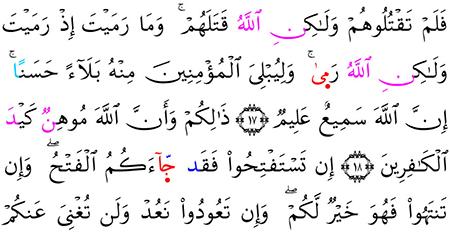 فَلَمْ تَقْتُلُوهُمْ وَلَـٰكِنِ ٱللَّهُ قَتَلَهُمْ ۚ وَمَا رَمَيْتَ إِذْ رَمَيْتَ
وَلَـٰكِنِ ٱللَّهُ رَمِىٰ ۚ وَلِيُبْلِىَ ٱلْمُؤْمِنِينَ مِنْهُ بَلَآءً حَسَنًا ۚ
إِنَّ ٱللَّهَ سَمِيعٌ عَلِيمٌ ۝١٧ ذَٰلِكُمْ وَأَنَّ ٱللَّهَ مُوهِنٌ كَيْدَ
ٱلْكَـٰفِرِينَ ۝١٨ إِن تَسْتَفْتِحُوا۟ فَقَد جَّآءَكُمُ ٱلْفَتْحُ ۖ وَإِن
تَنتَهُوا۟ فَهُوَ خَيْرٌ لَّكُمْ ۖ وَإِن تَعُودُوا۟ نَعُدْ وَلَن تُغْنِىَ عَنكُمْ